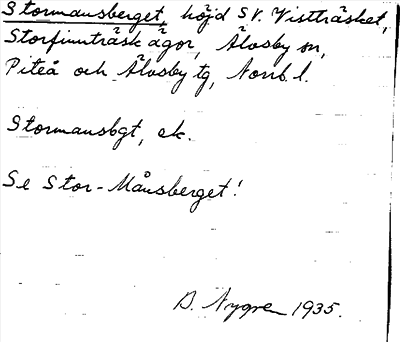 Stormansberget, höjd SV. Vistträsket,
Storfinnträsk ägor, Älvsby sn,
Piteå och Älvsby tg, Norrb. l.
Stormansbgt, ek.
Se Stor-Månsberget!
D. Nygren 1935.